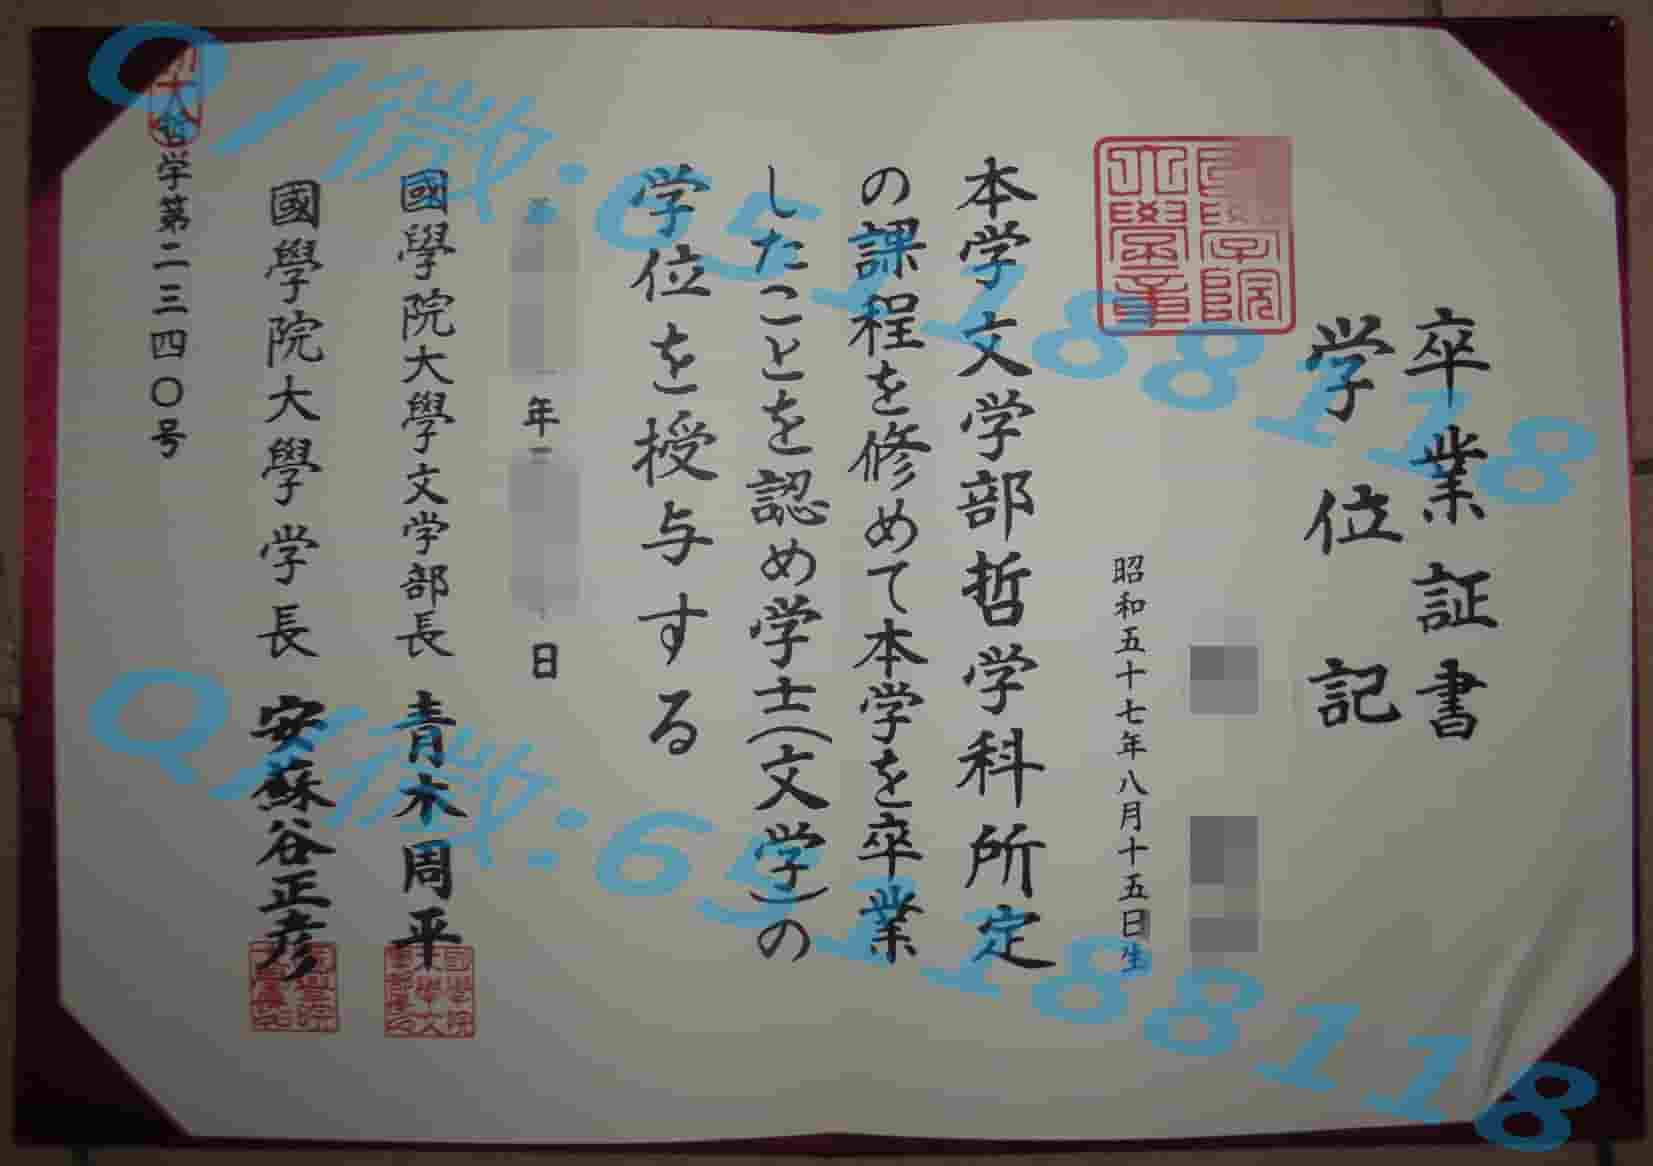 卒業証書
学位記
昭和五十七年八月十五日生
本学文学部哲学科所定
の課程を修めて本学を卒業
したことを認め学士(文学)の
学位を授与する
年
日
國學院大學文学部長 青木周平
國學院大學学長 安蘇谷正彦
哲学第二三四〇号
Q/微:655188118
Q/微:655188118